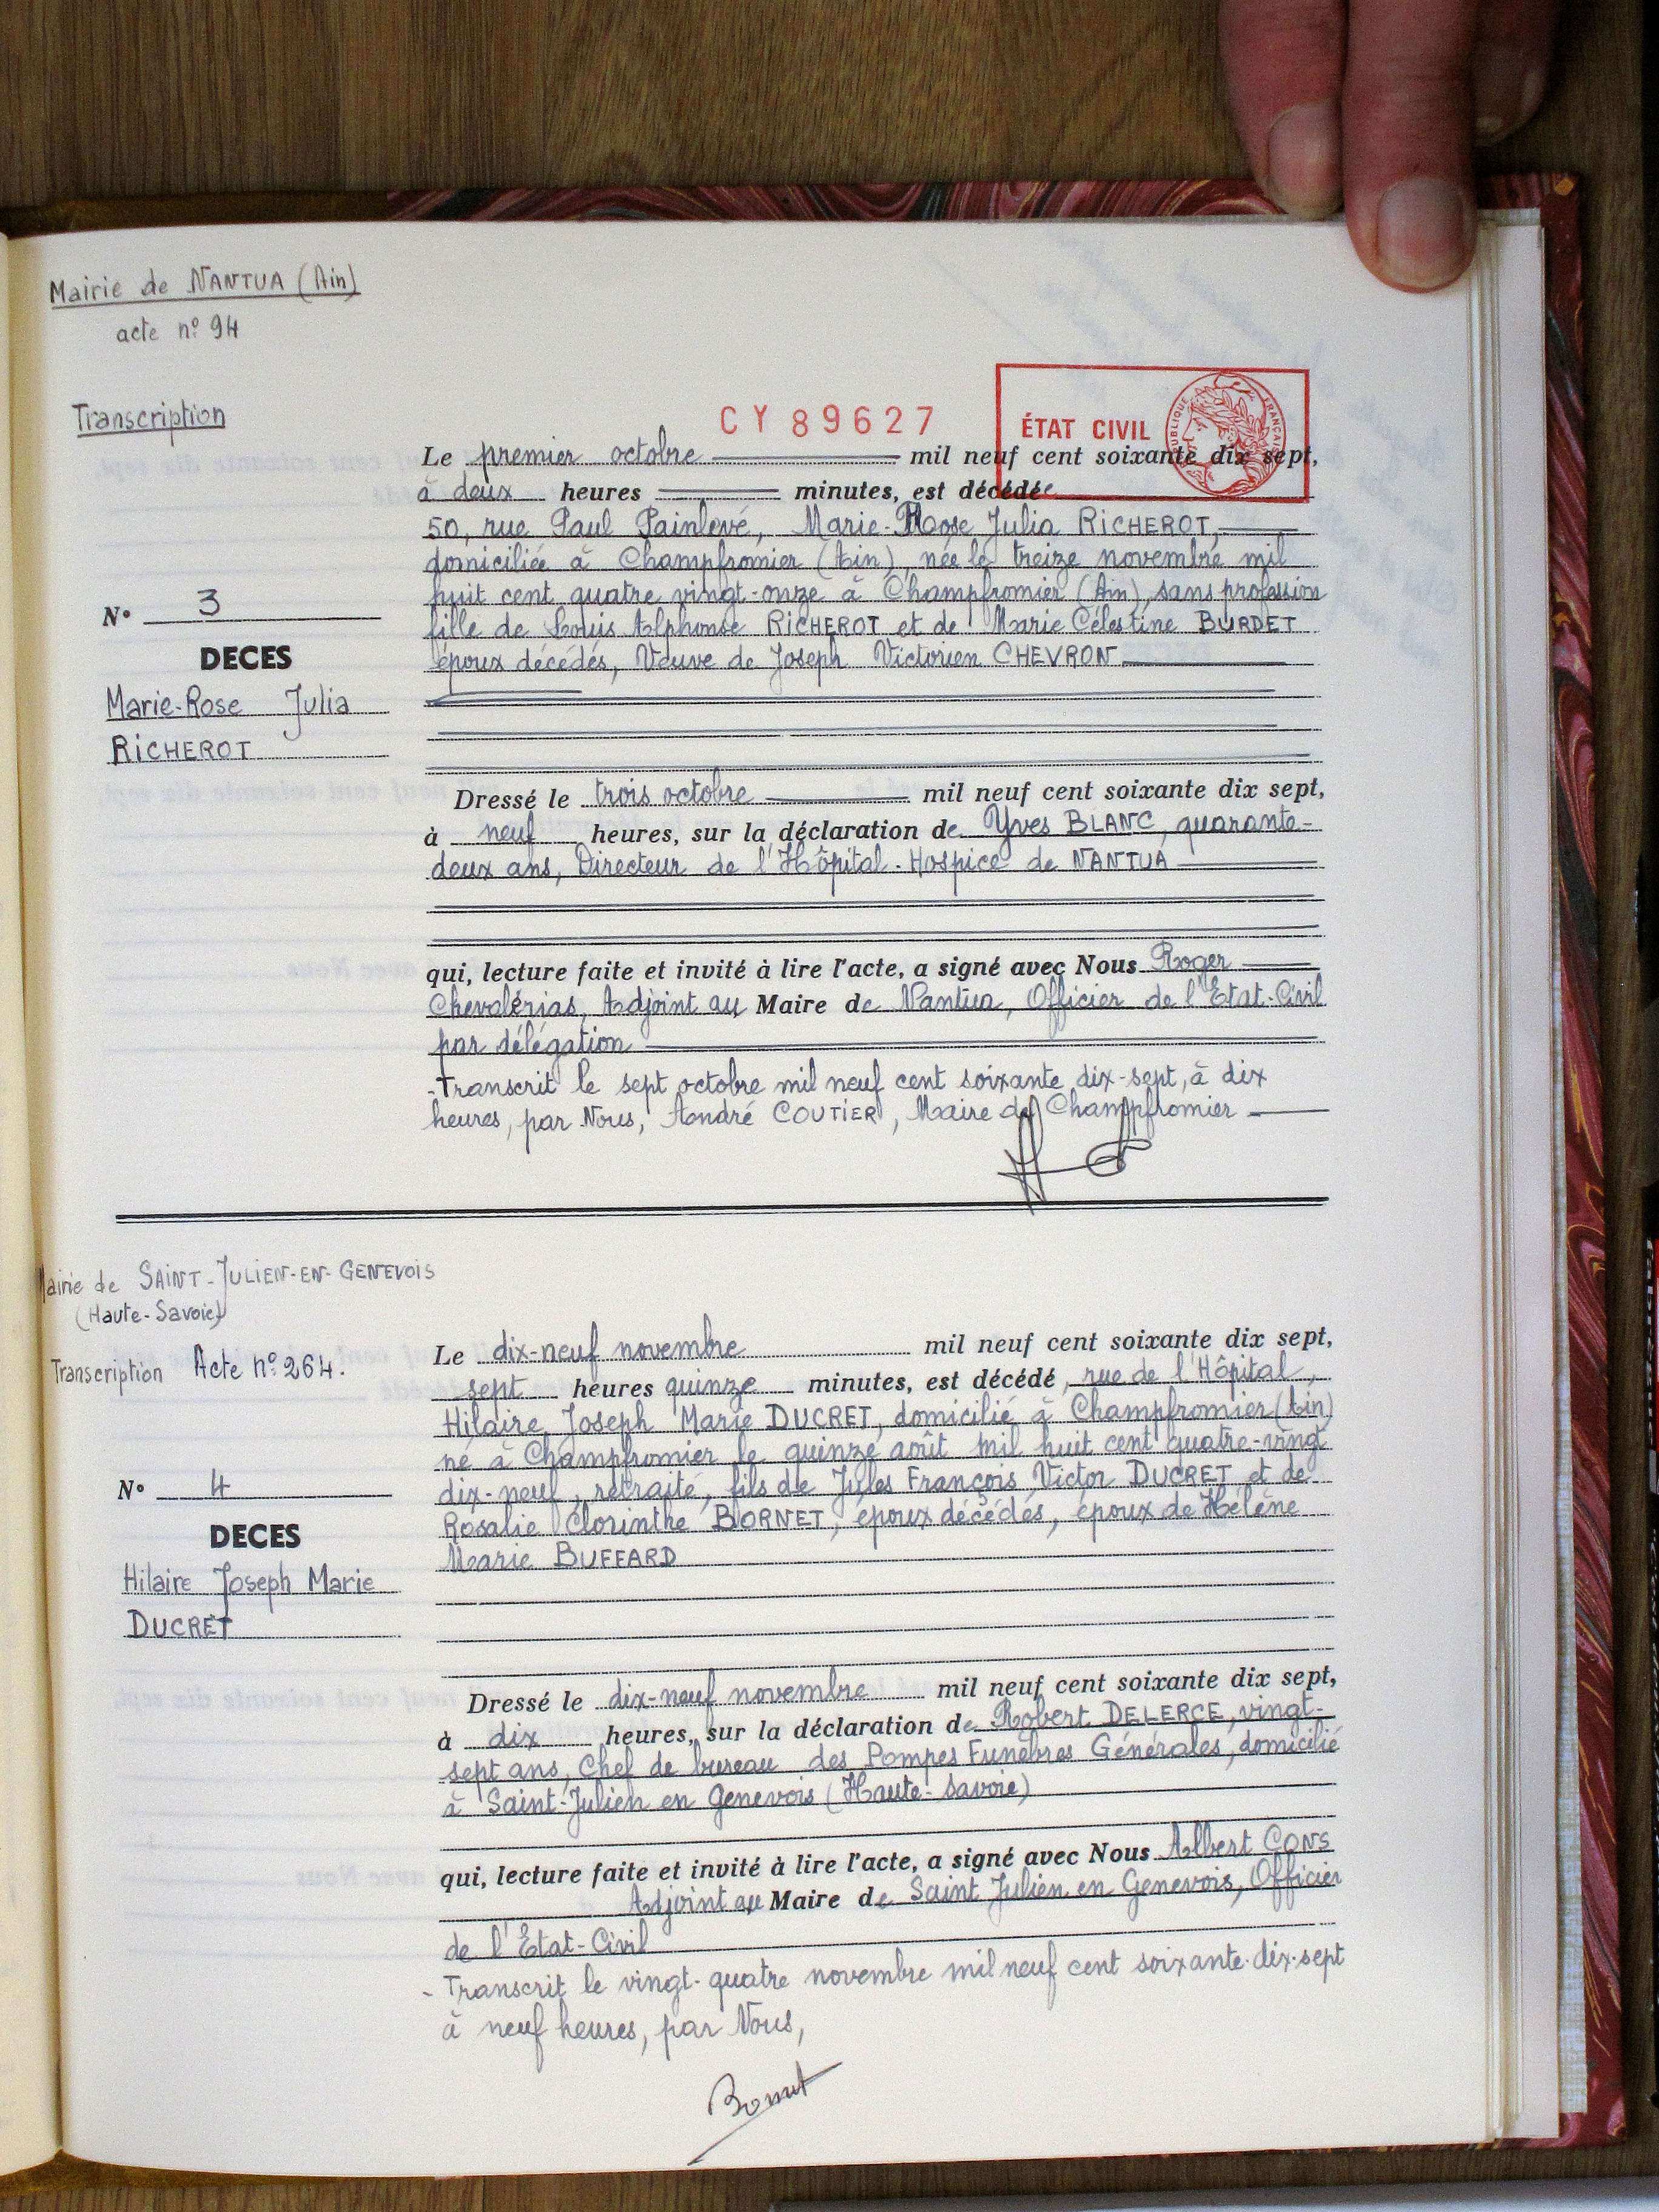 Mairie de NANTUA (Ain)
acte nº 94
Transcription
CY 89627
ÉTAT CIVIL
Le premier octobre mil neuf cent soixante dix sept,
à deux heures minutes, est décédée
50, rue Paul Painlevé, Marie-Rose Julia RICHEROT,
domiciliée à Champfromier (Ain), née le treize novembre mil
huit cent quatre vingt-onze à Champfromier (Ain), sans profession
fille de Louis Alphonse RICHEROT et de Marie Célestine BURDET
époux décédés, Veuve de Joseph Victorien CHEVRON
Nº 3
DECES
Marie-Rose Julia
RICHEROT
Dressé le trois octobre mil neuf cent soixante dix sept,
à neuf heures, sur la déclaration de Yves BLANC, quarante-
deux ans, Directeur de l'Hôpital-Hospice de NANTUA
qui, lecture faite et invité à lire l'acte, a signé avec Nous Roger
Chevalérias, Adjoint au Maire de Nantua, Officier de l'Etat-Civil
par délégation
- Transcrit le sept octobre mil neuf cent soixante dix-sept, à dix
heures, par Nous, André COUTIER, Maire de Champfromier
Mairie de SAINT-JULIEN-EN-GENEVOIS
(Haute-Savoie)
Transcription Acte nº 264.
Le dix-neuf novembre mil neuf cent soixante dix sept,
sept heures quinze minutes, est décédé, rue de l'Hôpital,
Hilaire Joseph Marie DUCRET, domicilié à Champfromier (Ain)
né à Champfromier le quinze août mil huit cent quatre-vingt
dix-neuf, retraité, fils de Jules François Victor DUCRET et de
Rosalie Clorinthe BORNET, époux décédés, époux de Hélène
Marie BUFFARD
Nº 4
DECES
Hilaire Joseph Marie
DUCRET
Dressé le dix-neuf novembre mil neuf cent soixante dix sept,
à dix heures, sur la déclaration de Robert DELERCE, vingt-
sept ans, Chef de bureau des Pompes Funèbres Générales, domicilié
à Saint-Julien en Genevois (Haute-Savoie)
qui, lecture faite et invité à lire l'acte, a signé avec Nous Albert CONS
Adjoint au Maire de Saint Julien en Genevois, Officier
de l'Etat-Civil
- Transcrit le vingt-quatre novembre mil neuf cent soixante-dix-sept
à neuf heures, par Nous,